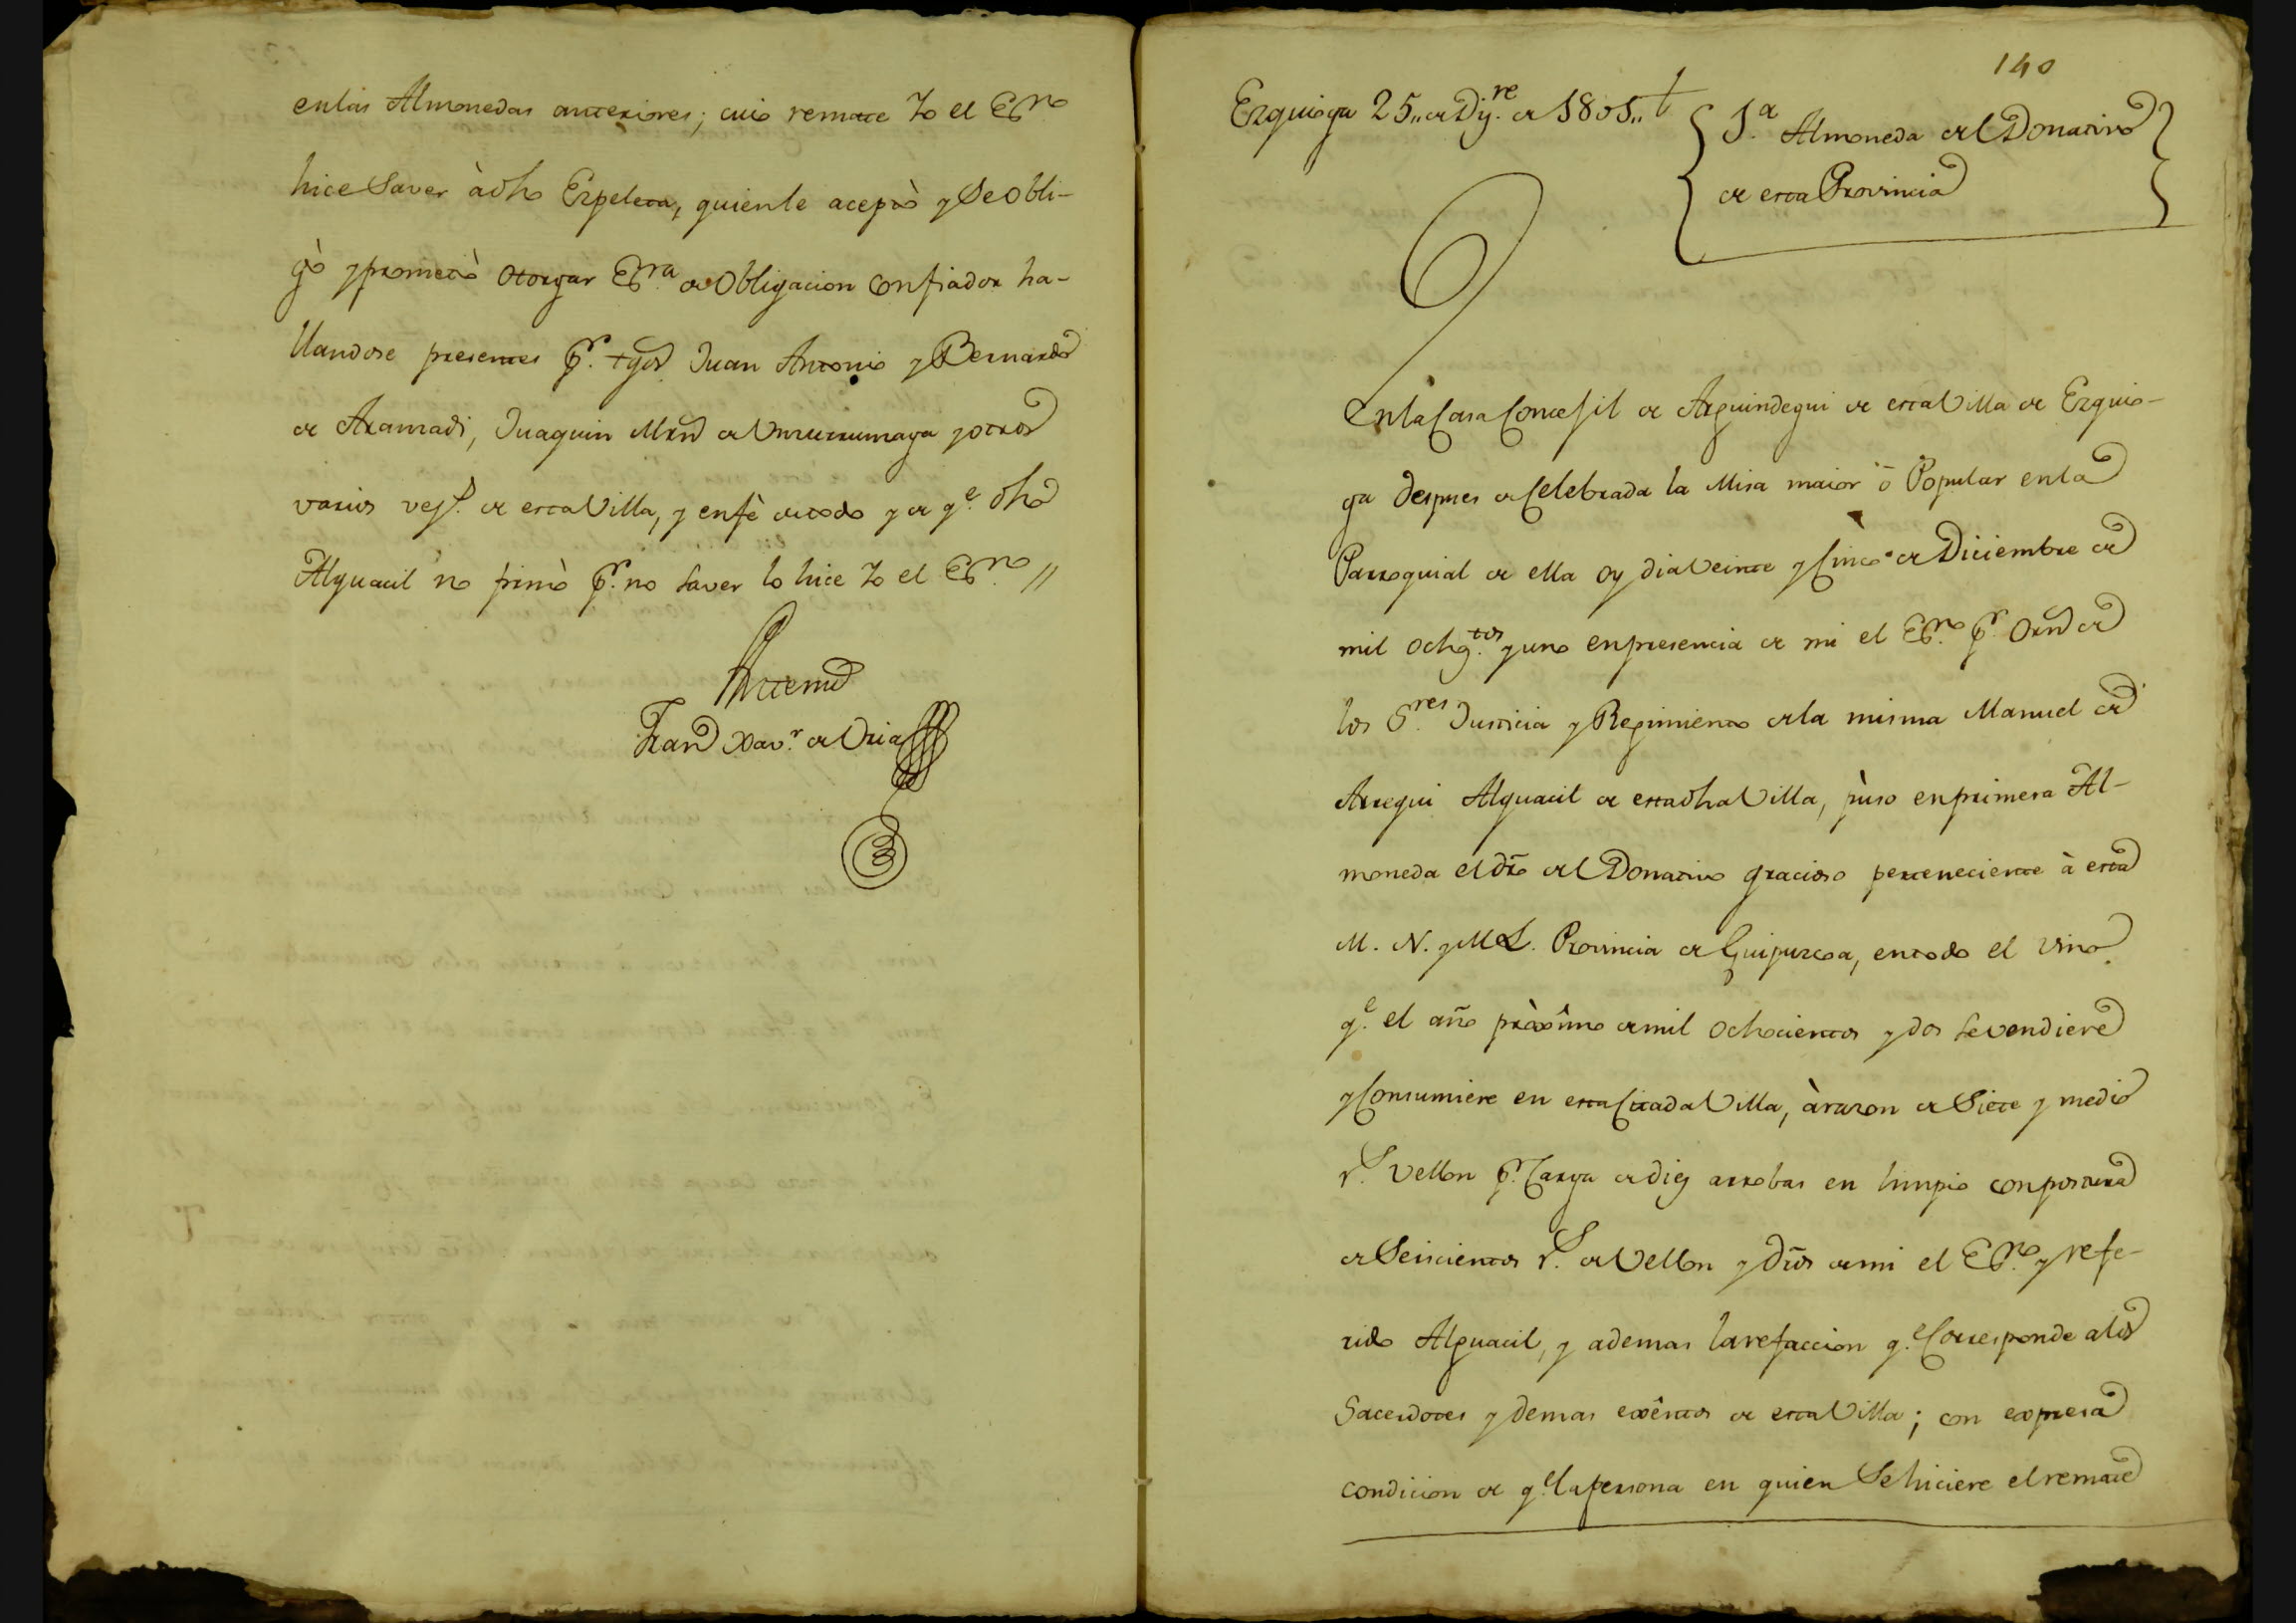 en las Almonedas anteriores; cuio remate Yo el Essno
hice Saver à dho Ezpeleta, quien le aceptò y Se obli-
gò y prometiò otorgar Essra de Obligacion con fiador ha-
llandose presentes pr. tgos Juan Antonio y Bernardo
de Aramadi, Juaquin Mrn de Umurumaga y otros
varios vezs. de esta Villa, y en fè de todo y de qe. dho
Alguacil no firmò pr. no saver lo hice Yo el Essno //
Ante mi
Franco Xavr. de Oria
140
Ezquioga 25,, de Dizre. de 1801,, t
1.a Almoneda del Donativo
de esta Provincia
En la Casa Concejil de Arguindegui de esta Villa de Ezquio-
ga despues de Celebrada la Misa maior ô Popular en la
Parroquial de ella oy dia Veinte y Cinco de Diciembre de
mil ochoz.tos y uno en presencia de mi el Essno. pr. Orn de
los Sres. Justicia y Regimiento de la misma Manuel de
Arregui Alguacil de esta dha Villa, puso en primera Al-
moneda el dro del Donativo gracioso perteneciente à esta
M. N. y M L. Provincia de Guipuzcoa, en todo el vino
qe. el año pròximo de mil ochocientos y dos se vendiere
y Consumiere en esta Citada Villa, à razon de Siete y medio
rs. vellon pr. Carga de diez arrobas en limpio con postura
de Seiscientos rs. de Vellon y dros de mi el Essno. y refe-
rido Alguacil, y ademas la refaccion qe. Corresponde a los
Sacerdotes y demas exêntos de esta Villa; con expresa
condicion de qe. la persona en quien Se hiciere el remate